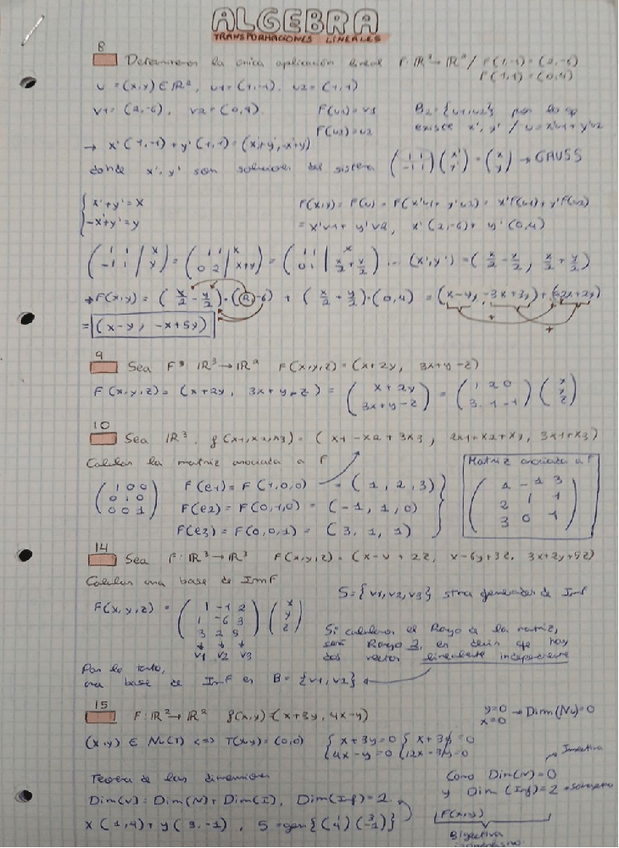 ALGEBRA
TRANSFORMACIONES LINEALES
8
Determinemos la única aplicación lineal F: IR² → IR² / F(1,-1) = (2,-6)
F(1,1) = (0,4)
u = (x,y) ∈ IR², u1 = (1,-1), u2 = (1,1)
v1 = (2,-6), v2 = (0,4) F(u1) = v1 B2 = {u1,u2} por lo que
F(u2) = v2 existe x', y' / u = x'u1 + y'u2
→ x'(1,-1) + y'(1,1) = (x'+y', -x'+y')
donde x', y' son soluciones del sistema (1 1 / -1 1) (x' / y') = (x / y) → GAUSS
x'+y' = x F(x,y) = F(u) = F(x'u1 + y'u2) = x'F(u1) + y'F(u2)
-x'+y' = y = x'v1 + y'v2, x'(2,-6) + y'(0,4)
(1 1 | x / -1 1 | y) = (1 1 | x / 0 2 | x+y) = (1 1 | x / 0 1 | x/2 + y/2) ... (x',y') = (x/2 - y/2, x/2 + y/2)
→ F(x,y) = (x/2 - y/2)·(2,-6) + (x/2 + y/2)·(0,4) = (x-y, -3x+3y) + (0, 2x+2y)
= (x-y, -x+5y)
9
Sea F: IR³ → IR² F(x,y,z) = (x+2y, 3x+y-z)
F(x,y,z) = (x+2y, 3x+y-z) = (x+2y / 3x+y-z) = (1 2 0 / 3 1 -1) (x / y / z)
10
Sea IR³. f(x1,x2,x3) = (x1 - x2 + 3x3, 2x1+x2+x3, 3x1+x3)
Calcular la matriz asociada a F Matriz asociada a F
(1 0 0 / 0 1 0 / 0 0 1) F(e1) = F(1,0,0) = (1, 2, 3) (1 -1 3 / 2 1 1 / 3 0 1)
F(e2) = F(0,1,0) = (-1, 1, 0)
F(e3) = F(0,0,1) = (3, 1, 1)
14
Sea F: IR³ → IR³ F(x,y,z) = (x-y+2z, x-6y+3z, 3x+2y+5z)
Calcular una base de ImF
S = {v1,v2,v3} generador de ImF
F(x,y,z) = (1 -1 2 / 1 -6 3 / 3 2 5) (x / y / z)
v1 v2 v3
Si calculamos el Rango de la matriz,
será Rango 2, es decir que hay
dos vector linealmente independiente
Por lo tanto,
una base de ImF es B = {v1,v2}
15
F: IR² → IR² f(x,y) = (x+3y, 4x-y)
y=0
x=0 → Dim(Nu) = 0
(x,y) ∈ Nu(T) <=> T(x,y) = (0,0) {x+3y=0 / 4x-y=0 {x+3y=0 / 12x-3y=0
Inyectiva
Teorema de las dimensiones
Como Dim(N) = 0
Dim(V) = Dim(N) + Dim(I), Dim(Imf) = 2 y Dim(Imf) = 2
x(1,4) + y(3,-1), S = gen{(1 / 4) (3 / -1)} F(x,y)
Biyectiva